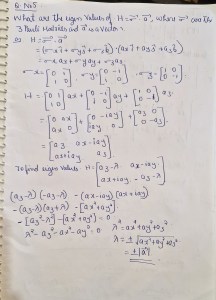 Q. No5
What are the eigen Values of H = σ⃗ · a⃗, where σ⃗ are the
3 Pauli Matrices and a⃗ is a vector.
H = σ⃗ · a⃗
= (σx î + σy ĵ + σz k̂) · (ax î + ay ĵ + az k̂)
= σx ax + σy ay + σz az
σx = [0 1; 1 0] σy = [0 -i; i 0] σz = [1 0; 0 -1]
H = [0 1; 1 0] ax + [0 -i; i 0] ay + [1 0; 0 -1] az
= [0 ax; ax 0] + [0 -iay; iay 0] + [az 0; 0 -az]
= [az ax-iay; ax+iay -az]
To find eigen values. H = [az-λ ax-iay; ax+iay -az-λ]
(az-λ)(-az-λ) - (ax-iay)(ax+iay)
-(az-λ)(az+λ) - [ax²+ay²]
-[az²-λ²] - [ax²+ay²] = 0
λ² - az² - ax² - ay² = 0
λ² = ax²+ay²+az²
λ = ±√ax²+ay²+az²
= ±|a⃗|